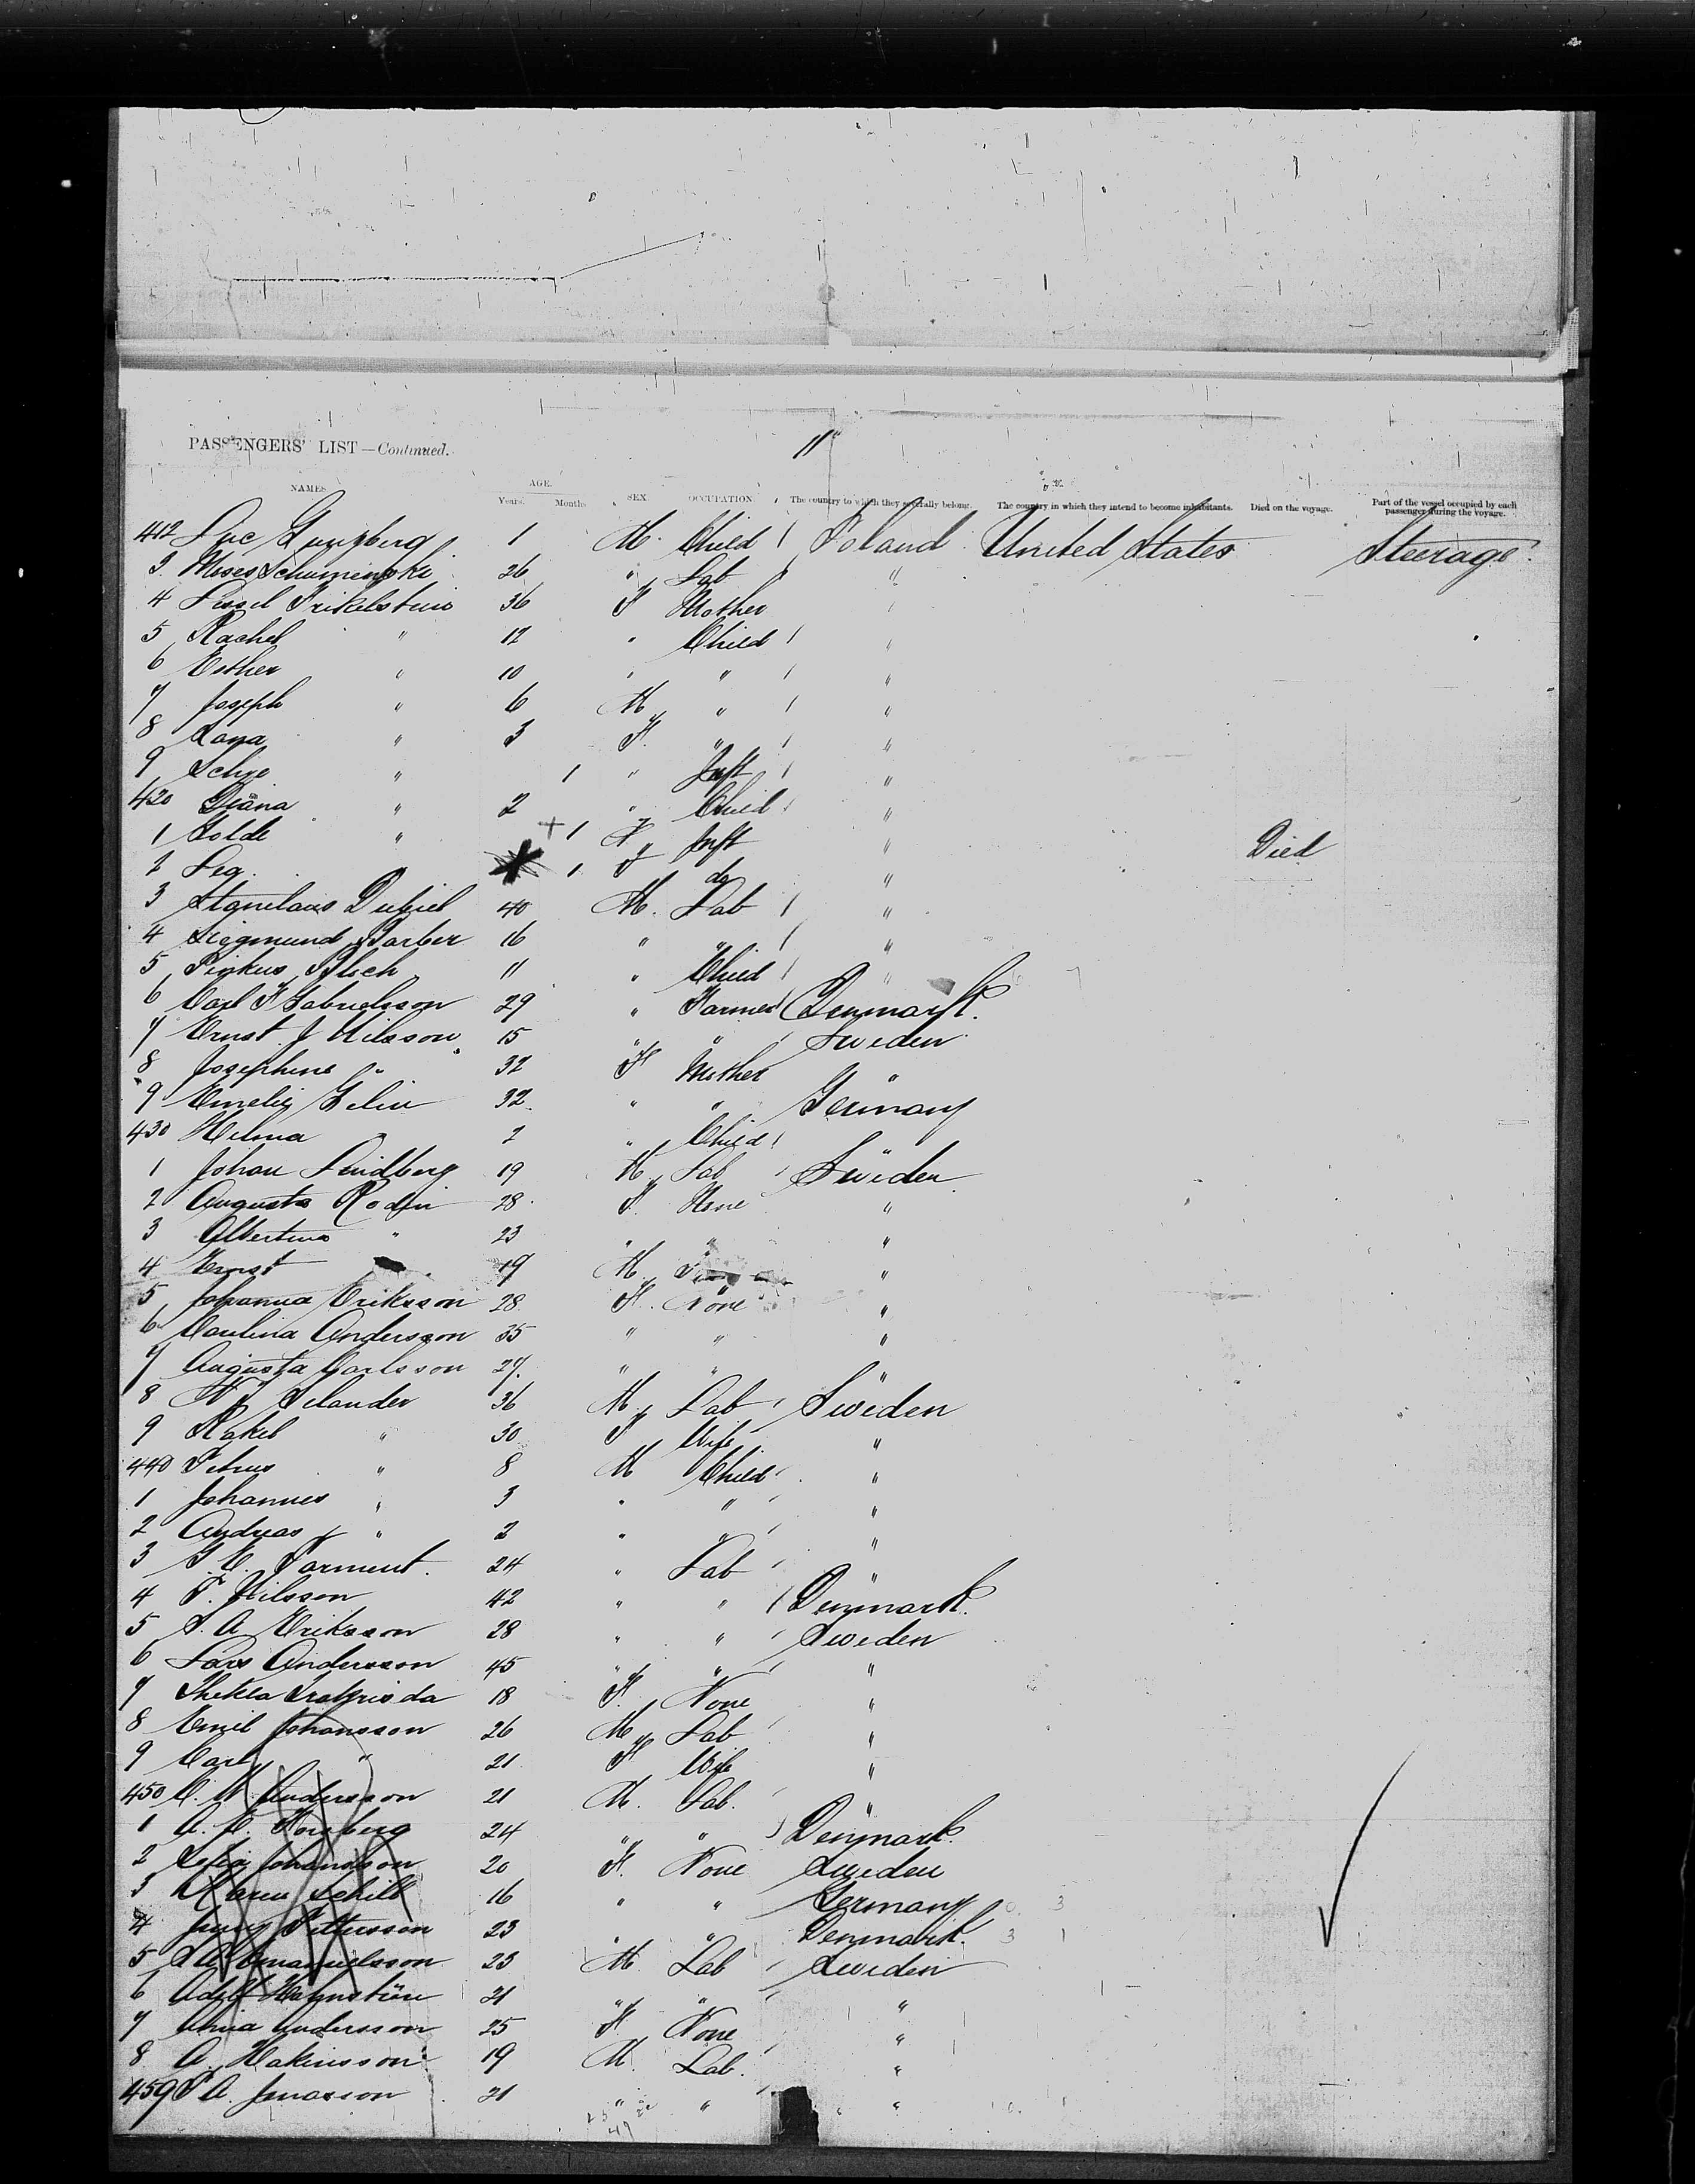 11
PASSENGERS' LIST—Continued.
NAMES AGE. Years. Months. SEX. OCCUPATION The country to which they severally belong. The country in which they intend to become inhabitants. Died on the voyage. Part of the vessel occupied by each passenger during the voyage.
412 1 M. Child Poland United States Steerage
3 Moses Schuminski 26 " Lab "
4 36 F Mother "
5 Rachel " 12 " Child "
6 Esther " 10 " " "
7 Joseph " 6 M " "
8 " 3 F. " "
9 " 1 " Inft "
420 Diana " 2 " Child "
1 Golde " + 1 Inft " Died
2 Lea 1 F do "
3 40 M. Lab "
4 Siegmund Barber 16 " " "
5 Pinkus 11 " Child "
6 Carl F Gabrielsson 29 " Farmer Denmark.
7 Ernst J Nilsson 15 " " Sweden
8 Josephine " 32 F Mother "
9 32 " " Germany
430 Helma 2 " Child "
1 Johan Lindberg 19 M Lab Sweden
2 Augusta Rodin 28 F. None "
3 Albertina " 23 " " "
4 Ernst 19 M "
5 Johanna Eriksson 28 F. None "
6 Carolina Andersson 35 " " "
7 Augusta Carlsson 27 " " "
8 Selander 36 M Lab Sweden
9 Rakel " 30 F Wife "
440 Petrus " 8 M Child "
1 Johannes " 3 " " "
2 Andreas " 2 " " "
3 24 " Lab "
4 P. Nilsson 42 " " Denmark.
5 S. A. Eriksson 28 " " Sweden
6 Lars Andersson 45 " " "
7 Thekla 18 F. None "
8 Emil Johansson 26 M Lab "
9 Carl " 21 F Wife "
450 Andersson 21 M. Lab. "
1 24 " " Denmark.
2 Sofia Johansson 20 F. None Sweden
3 16 " " Germany
4 Jenny Pettersson 23 " " Denmark.
5 Emanuelsson 23 M Lab Sweden
6 Adolf 21 " " "
7 Anna Andersson 25 F None "
8 A. Hakinsson 19 M Lab. "
459 P A. Jonasson 21 " " "